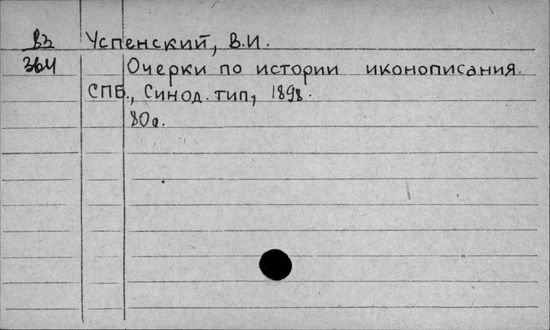 ВЗ Успенский, В.И.
ЗЫ Очерки по истории иконописания.
СПБ., Синод. тип, 1898.
80с.